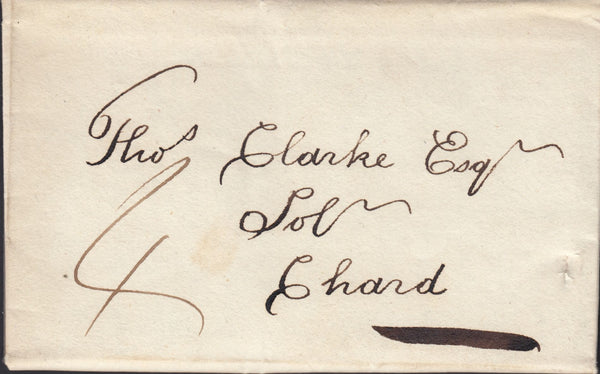 Thos Clarke Esqr
Solr
4
Chard